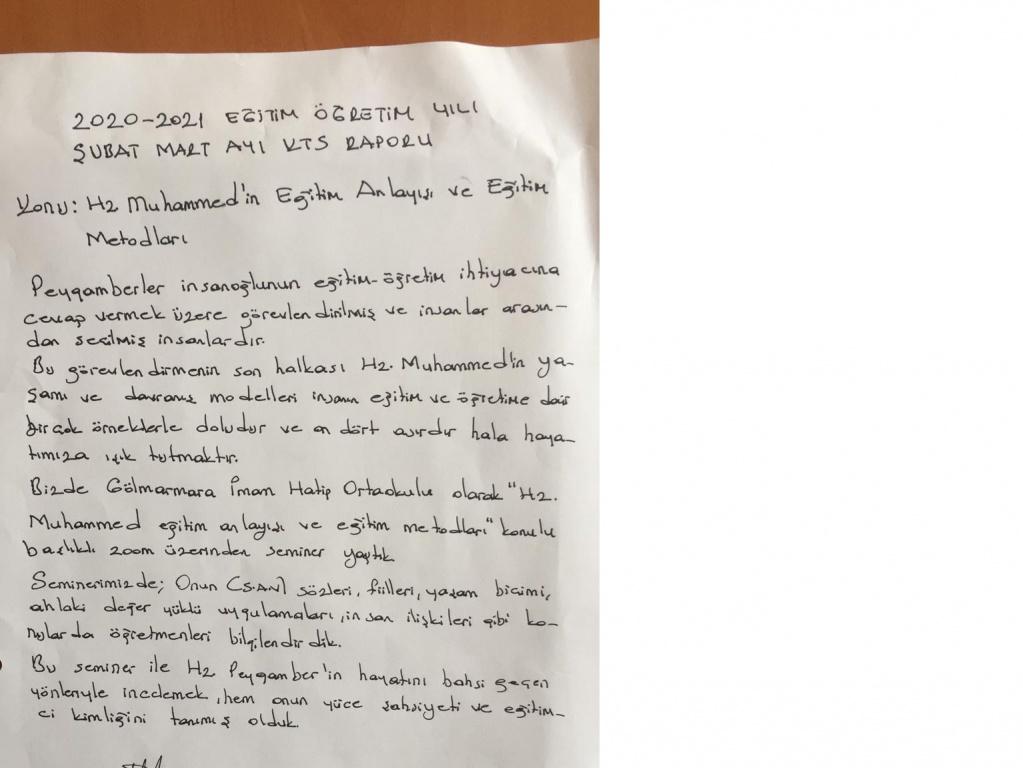 2020-2021 EĞİTİM ÖĞRETİM YILI
ŞUBAT MART AYI KTS RAPORU
Konu: Hz Muhammed'in Eğitim Anlayışı ve Eğitim
Metodları
Peygamberler insanoğlunun eğitim-öğretim ihtiyacına
cevap vermek üzere görevlendirilmiş ve insanlar arasın-
dan seçilmiş insanlardır.
Bu görevlendirmenin son halkası Hz. Muhammed'in ya-
şamı ve davranış modelleri insanın eğitim ve öğretime dair
birçok örneklerle doludur ve on dört asırdır hala haya-
tımıza ışık tutmaktır.
Bizde Gölmarmara İmam Hatip Ortaokulu olarak "Hz.
Muhammed eğitim anlayışı ve eğitim metodları" konulu
başlıklı zoom üzerinden seminer yaptık
Seminerimizde; Onun (S.A.V) sözleri, fiilleri, yaşam biçimi,
ahlaki değer yüklü uygulamaları, insan ilişkileri gibi ko-
nularda öğretmenleri bilgilendirdik.
Bu seminer ile Hz Peygamber'in hayatını bahsi geçen
yönleriyle incelemek, hem onun yüce şahsiyeti ve eğitim-
ci kimliğini tanımış olduk.